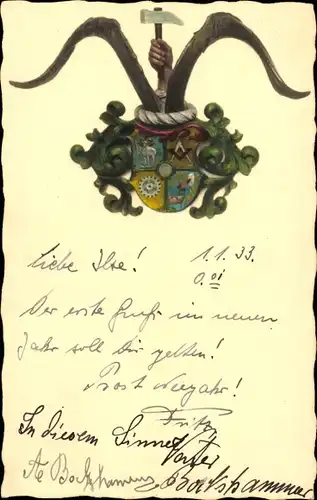 Liebe Ilse! 1.1.33.
0.01
Der erste Gruß im neuen
Jahr soll Dir gelten!
Prost Neujahr!
Fritz
In diesem Sinne
Vater
A Bockshammer Bockshammer